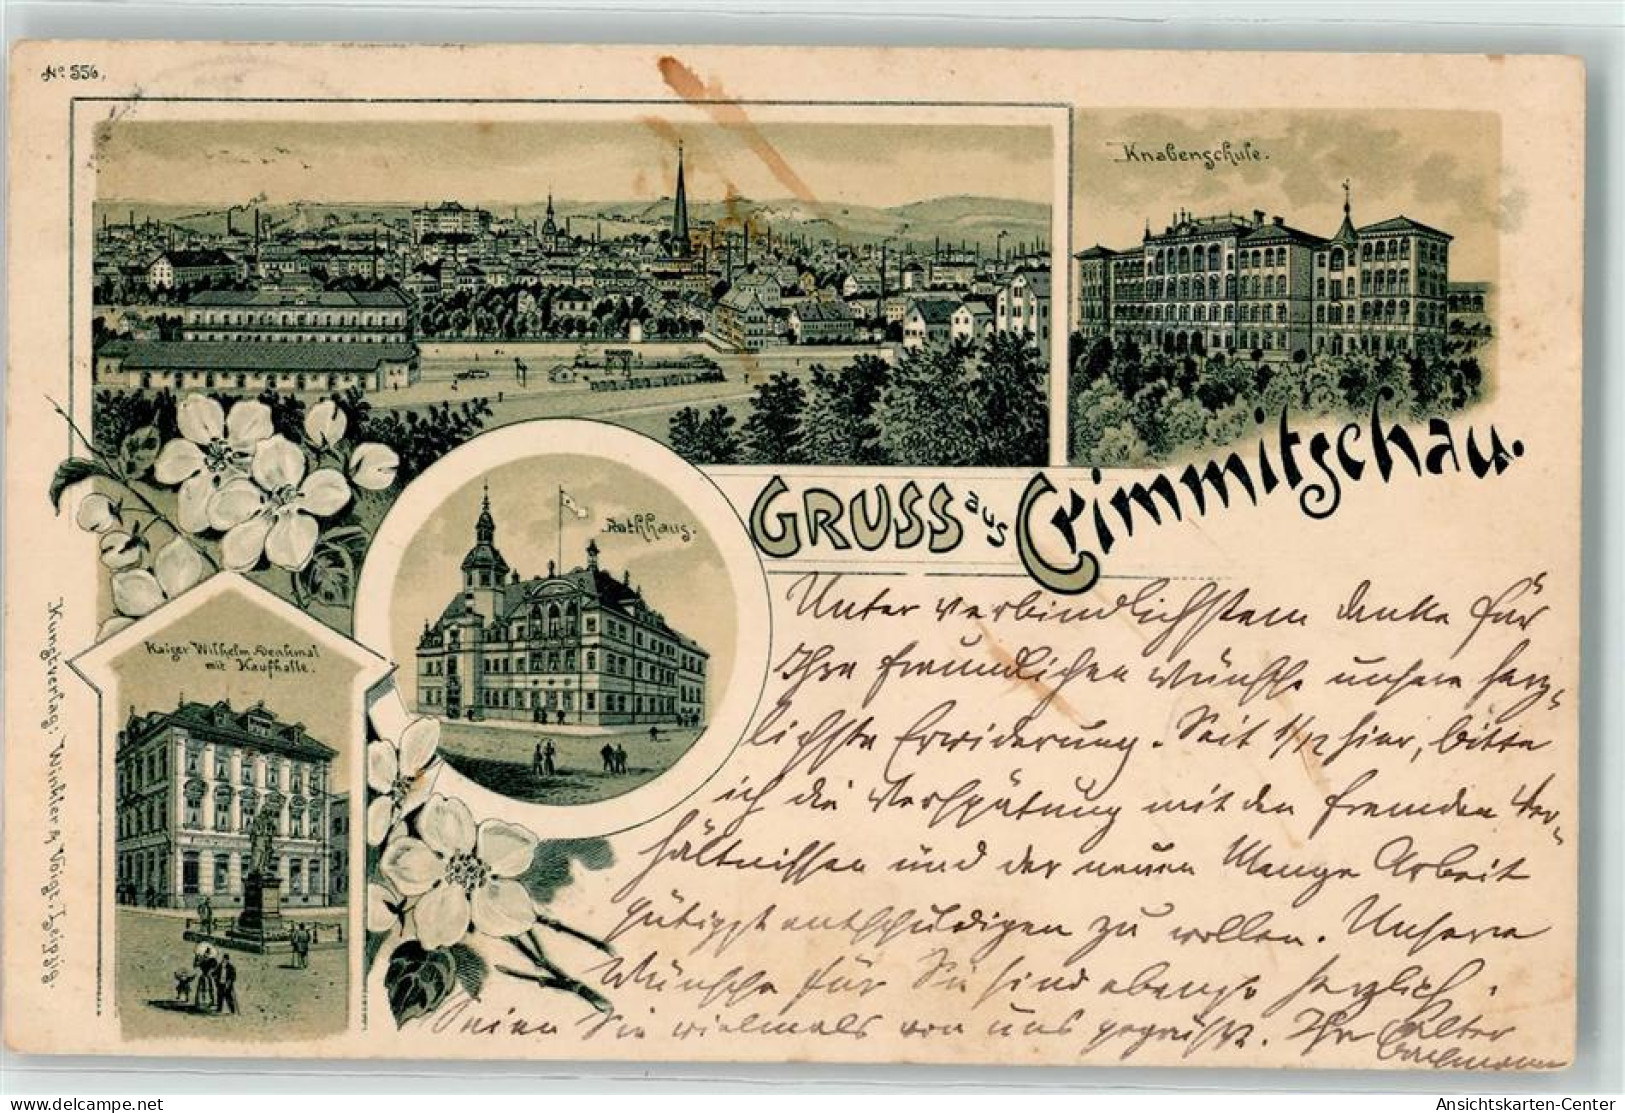 No. 556.
Knabenschule.
Rathhaus.
GRUSS aus Crimmitschau.
Kaiser Wilhelm Denkmal
mit Kaufhalle.
Kunstverlag: Winkler & Voigt, Leipzig.
Unter verbindlichstem Danke für
Ihre freundlichen Wünsche unsere herz-
lichste Erwiderung. Seit 1/12 hier, bitte
ich die Verspätung mit den fremden Ver-
hältnissen und der neuen Menge Arbeit
gütigst entschuldigen zu wollen. Unsere
Wünsche für Sie sind ebenso herzlich.
Seien Sie vielmals von uns gegrüßt. Ihr
delcampe.net
Ansichtskarten-Center